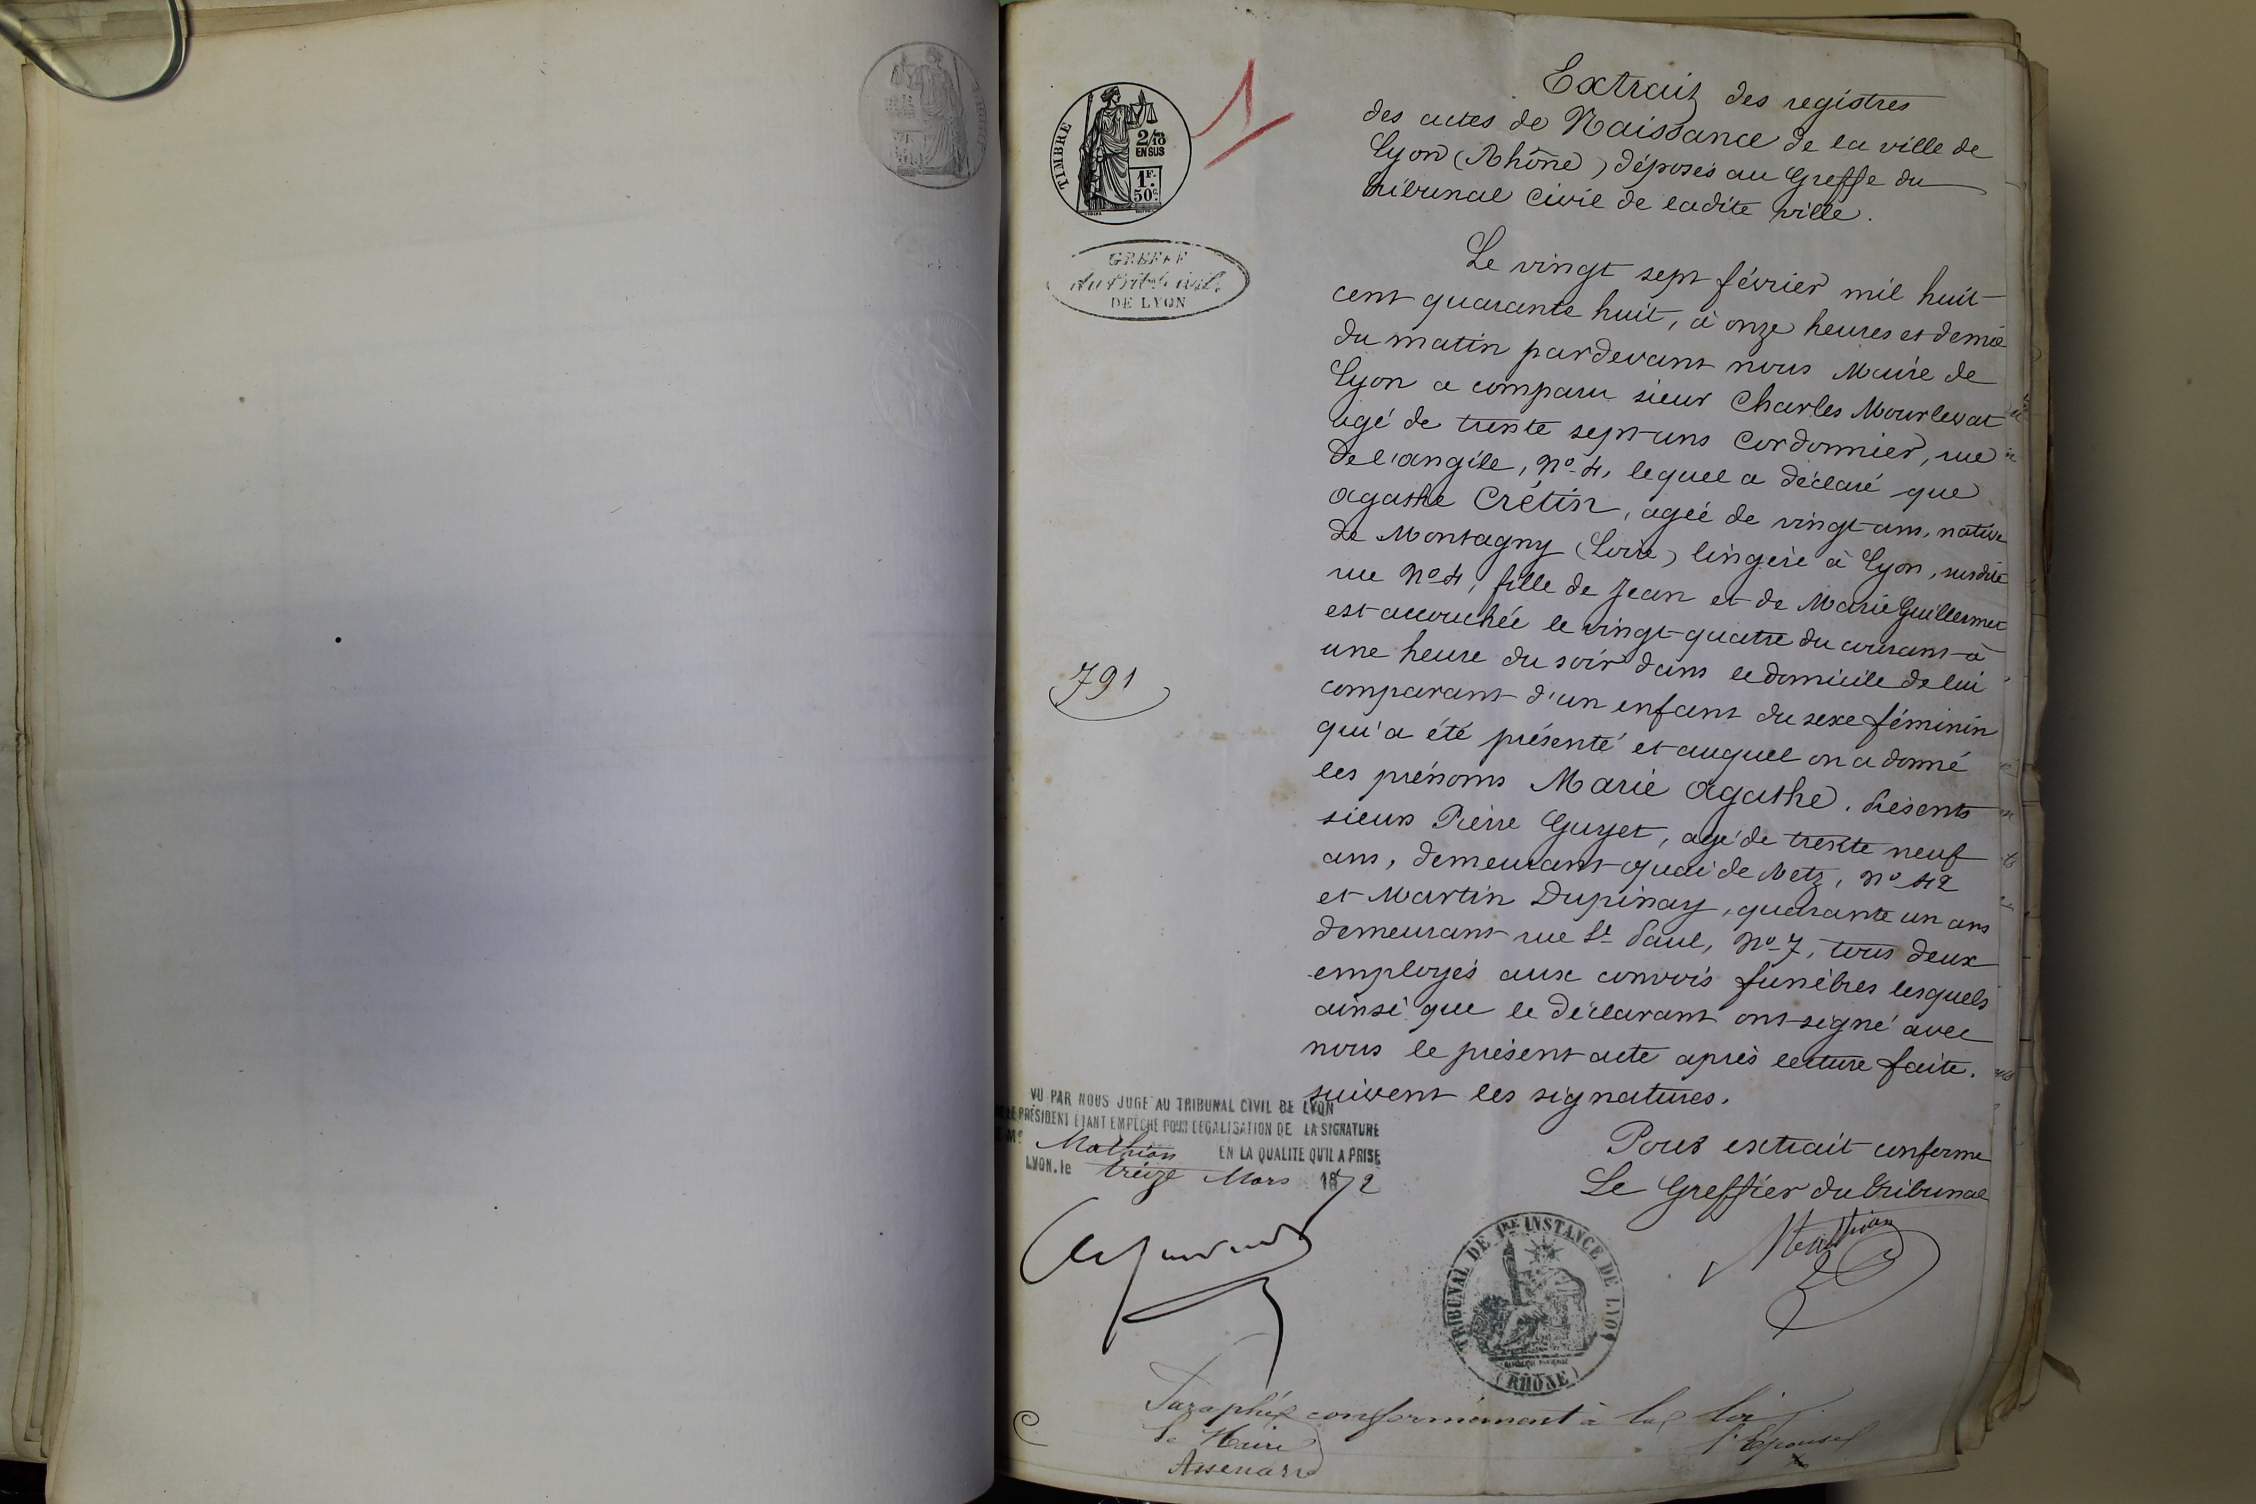 TIMBRE
2/10
EN SUS
1F.
50c.
1
GREFFE
DE LYON
Extrait des registres
des actes de Naissance de la ville de
Lyon (Rhône) déposés au Greffe du
tribunal Civil de ladite ville.
Le vingt sept février mil huit
cent quarante huit, à onze heures et demie
du matin pardevant nous Maire de
Lyon a comparu sieur Charles Mourlevat
agé de trente sept ans Cordonnier, rue
de l'angile, No 4, lequel a déclaré que
Agathe Crétin, agée de vingt ans, native
de Montagny (Loire) lingère à Lyon, susdite
rue No 4, fille de Jean et de Marie Guillermet
est accouchée le vingt-quatre du courant à
une heure du soir dans le domicile de lui
comparant d'un enfant du sexe féminin
qui a été présenté et auquel on a donné
les prénoms Marie Agathe. Présents
sieurs Pierre Guyet, agé de trente neuf
ans, demeurant quai de Metz, No 42
et Martin Dupinay, quarante un ans
demeurant rue St Paul, No 7, tous deux
employés aux convois funèbres lesquels
ainsi que le déclarant ont signé avec
nous le présent acte après lecture faite.
suivent les signatures.
791
Pour extrait conforme
Le Greffier du tribunal
Mathian
VU PAR NOUS JUGE AU TRIBUNAL CIVIL DE LYON
LE PRÉSIDENT ÉTANT EMPÊCHÉ POUR LÉGALISATION DE LA SIGNATURE
DE Me Mathian EN LA QUALITÉ QU'IL A PRISE
LYON, le treize Mars 1872
TRIBUNAL DE 1RE INSTANCE DE LYON
(RHÔNE)
Paraphé conformément à la loi
Le Maire
l'Epouse